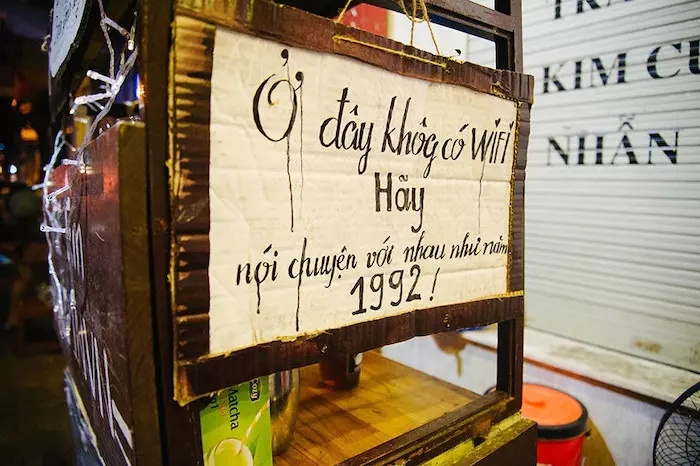 Ở đây khôg có WiFi
Hãy
nói chuyện với nhau như năm
1992!
KIM CƯ
NHẪN
Cozy
Matcha